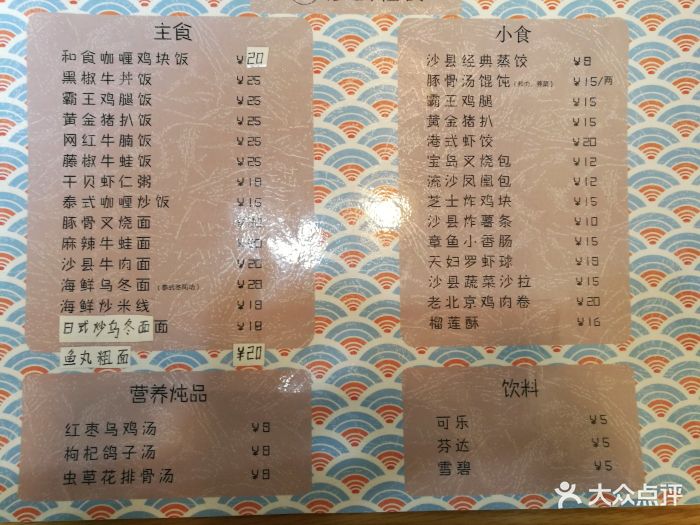 主食
和食咖喱鸡块饭 ¥20
黑椒牛丼饭 ¥25
霸王鸡腿饭 ¥25
黄金猪扒饭 ¥25
网红牛腩饭 ¥25
藤椒牛蛙饭 ¥25
干贝虾仁粥 ¥18
泰式咖喱炒饭 ¥15
豚骨叉烧面
麻辣牛蛙面
沙县牛肉面 ¥20
海鲜乌冬面 ¥20
海鲜炒米线 ¥18
日式炒乌冬面面 ¥18
鱼丸粗面 ¥20
小食
沙县经典蒸饺 ¥8
豚骨汤馄饨 ¥15/两
霸王鸡腿 ¥15
黄金猪扒 ¥15
港式虾饺 ¥20
宝岛叉烧包 ¥12
流沙凤凰包 ¥12
芝士炸鸡块 ¥15
沙县炸薯条 ¥10
章鱼小香肠 ¥15
天妇罗虾球 ¥18
沙县蔬菜沙拉 ¥15
老北京鸡肉卷 ¥20
榴莲酥 ¥16
营养炖品
红枣乌鸡汤 ¥8
枸杞鸽子汤 ¥8
虫草花排骨汤 ¥8
饮料
可乐 ¥5
芬达 ¥5
雪碧 ¥5
大众点评